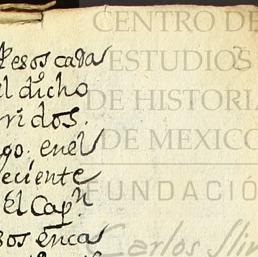 Pesos cada
el dicho
ridos.
go. en el
eciente
El Capn
sos en ca
CENTRO DE
ESTUDIOS
DE HISTORIA
DE MEXICO
FUNDACIÓ
Carlos Slim